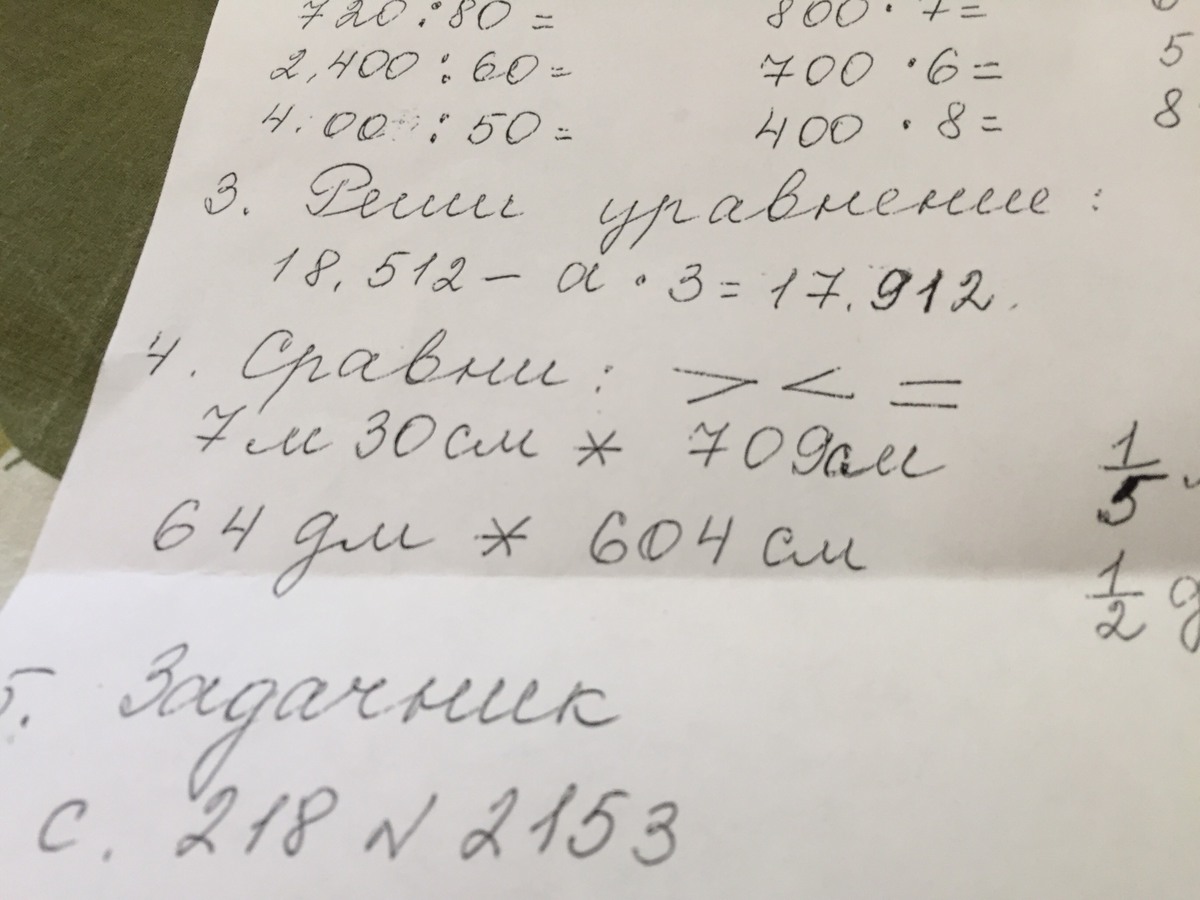 720:80= 800·7=
2,400:60= 700·6= 5
4.00:50= 400·8= 8
3. Реши уравнение:
18.512-a·3=17.912.
4. Сравни: > < =
7м 30см * 709см 1/5
64 дм * 604 см 1/2 д
5. Задачник
с. 218 N 2153